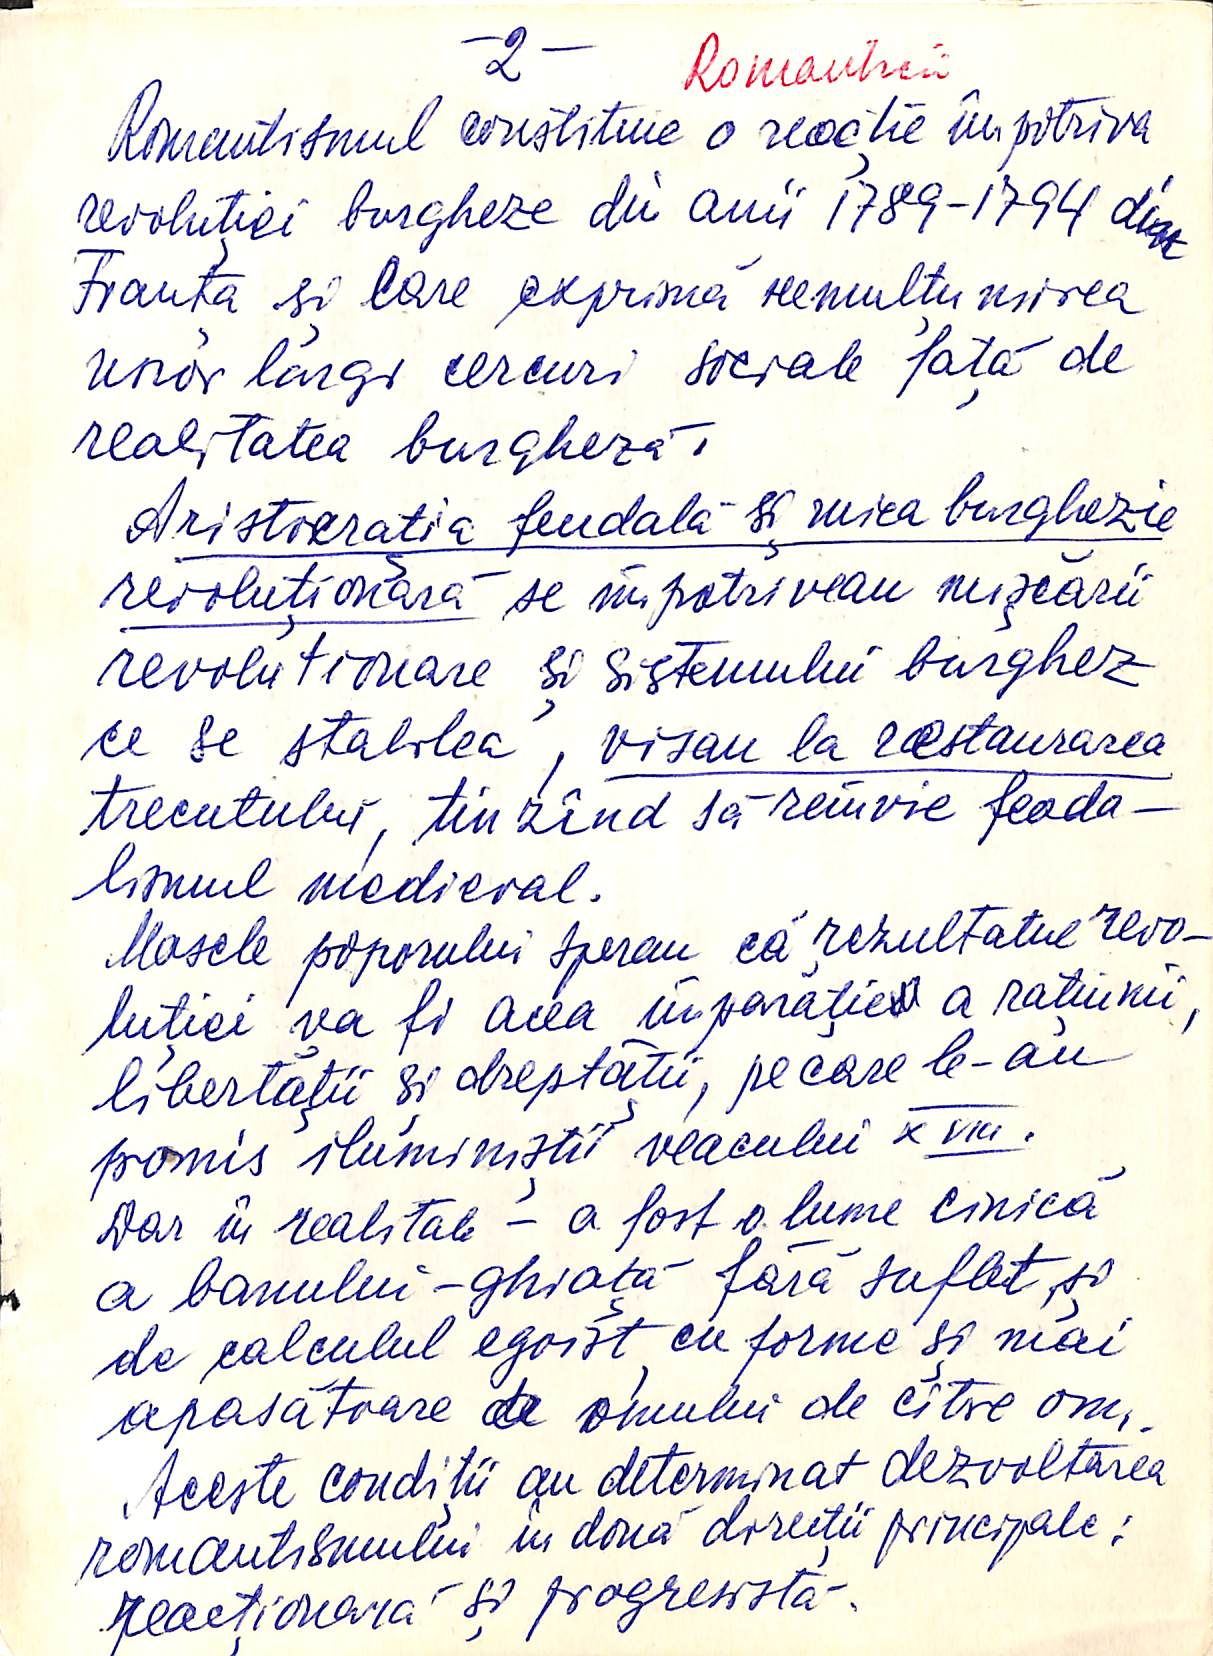 -2-
Romanticii
Romantismul constituie o reacție împotriva
revoluției burgheze din anii 1789-1794 din
Franța și care exprimă nemulțumirea
unor largi cercuri sociale față de
realitatea burgheză.
Aristocratia feudală și mica burghezie
revoluționară se împotriveau mișcării
revolutionare și sistemului burghez
ce se stabilea, visau la restaurarea
trecutului, tinzînd să reînvie feoda-
lismul medieval.
Masele poporului sperau că rezultatul revo-
luției va fi acea împărăție a rațiunii,
libertății și dreptății, pe care le-au
promis iluminiștii veacului XVIII.
Dar în realitate - a fost o lume cinică
a banului-ghiață fără suflet, și
de calculul egoist, cu forme și mai
apasătoare a omului de către om.
Aceste condiții au determinat dezvoltarea
romantismului în două direcții principale:
reacționară și progresistă.